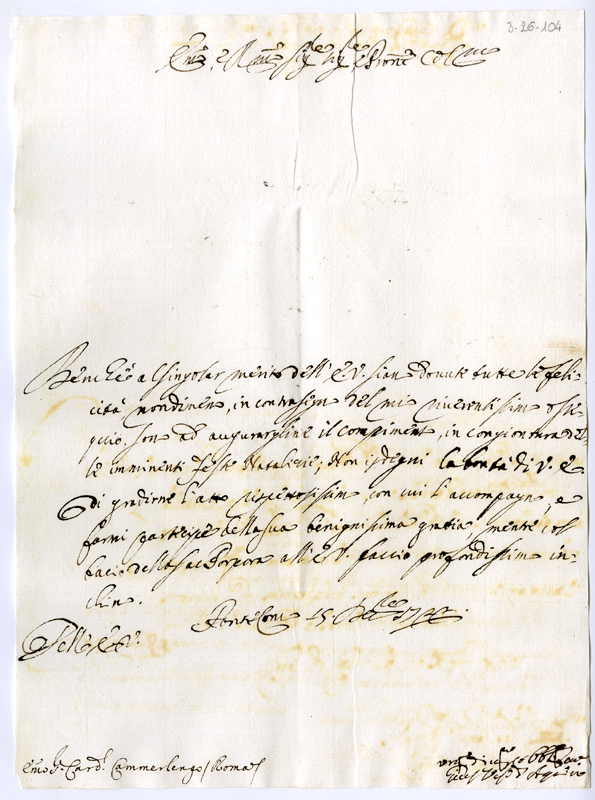 3-26-104
Em̃o, e Rmõ Sig.re Sig.re e Prone Col.mo
Benche al singolar merito dell' E.V. sian dovute tutte le feli-
cità nondimeno, in contrasegno del mio riverentissimo osse-
quio, son ad augurargline il compimento, in congiontura del-
le imminenti Feste Natalizie; Non isdegni la bontà di V. E.
di gradirne l'atto rispettosissimo, con cui l'accompagno, e
farmi partecipe della sua benignissima gratia, mentre col
bacio della Sac. Porpora all' E.V. faccio profondissimo in-
chino.
15. Xbre
Dell' E.V.
Em̃o S.r Card.l Cammerlengo / Roma /